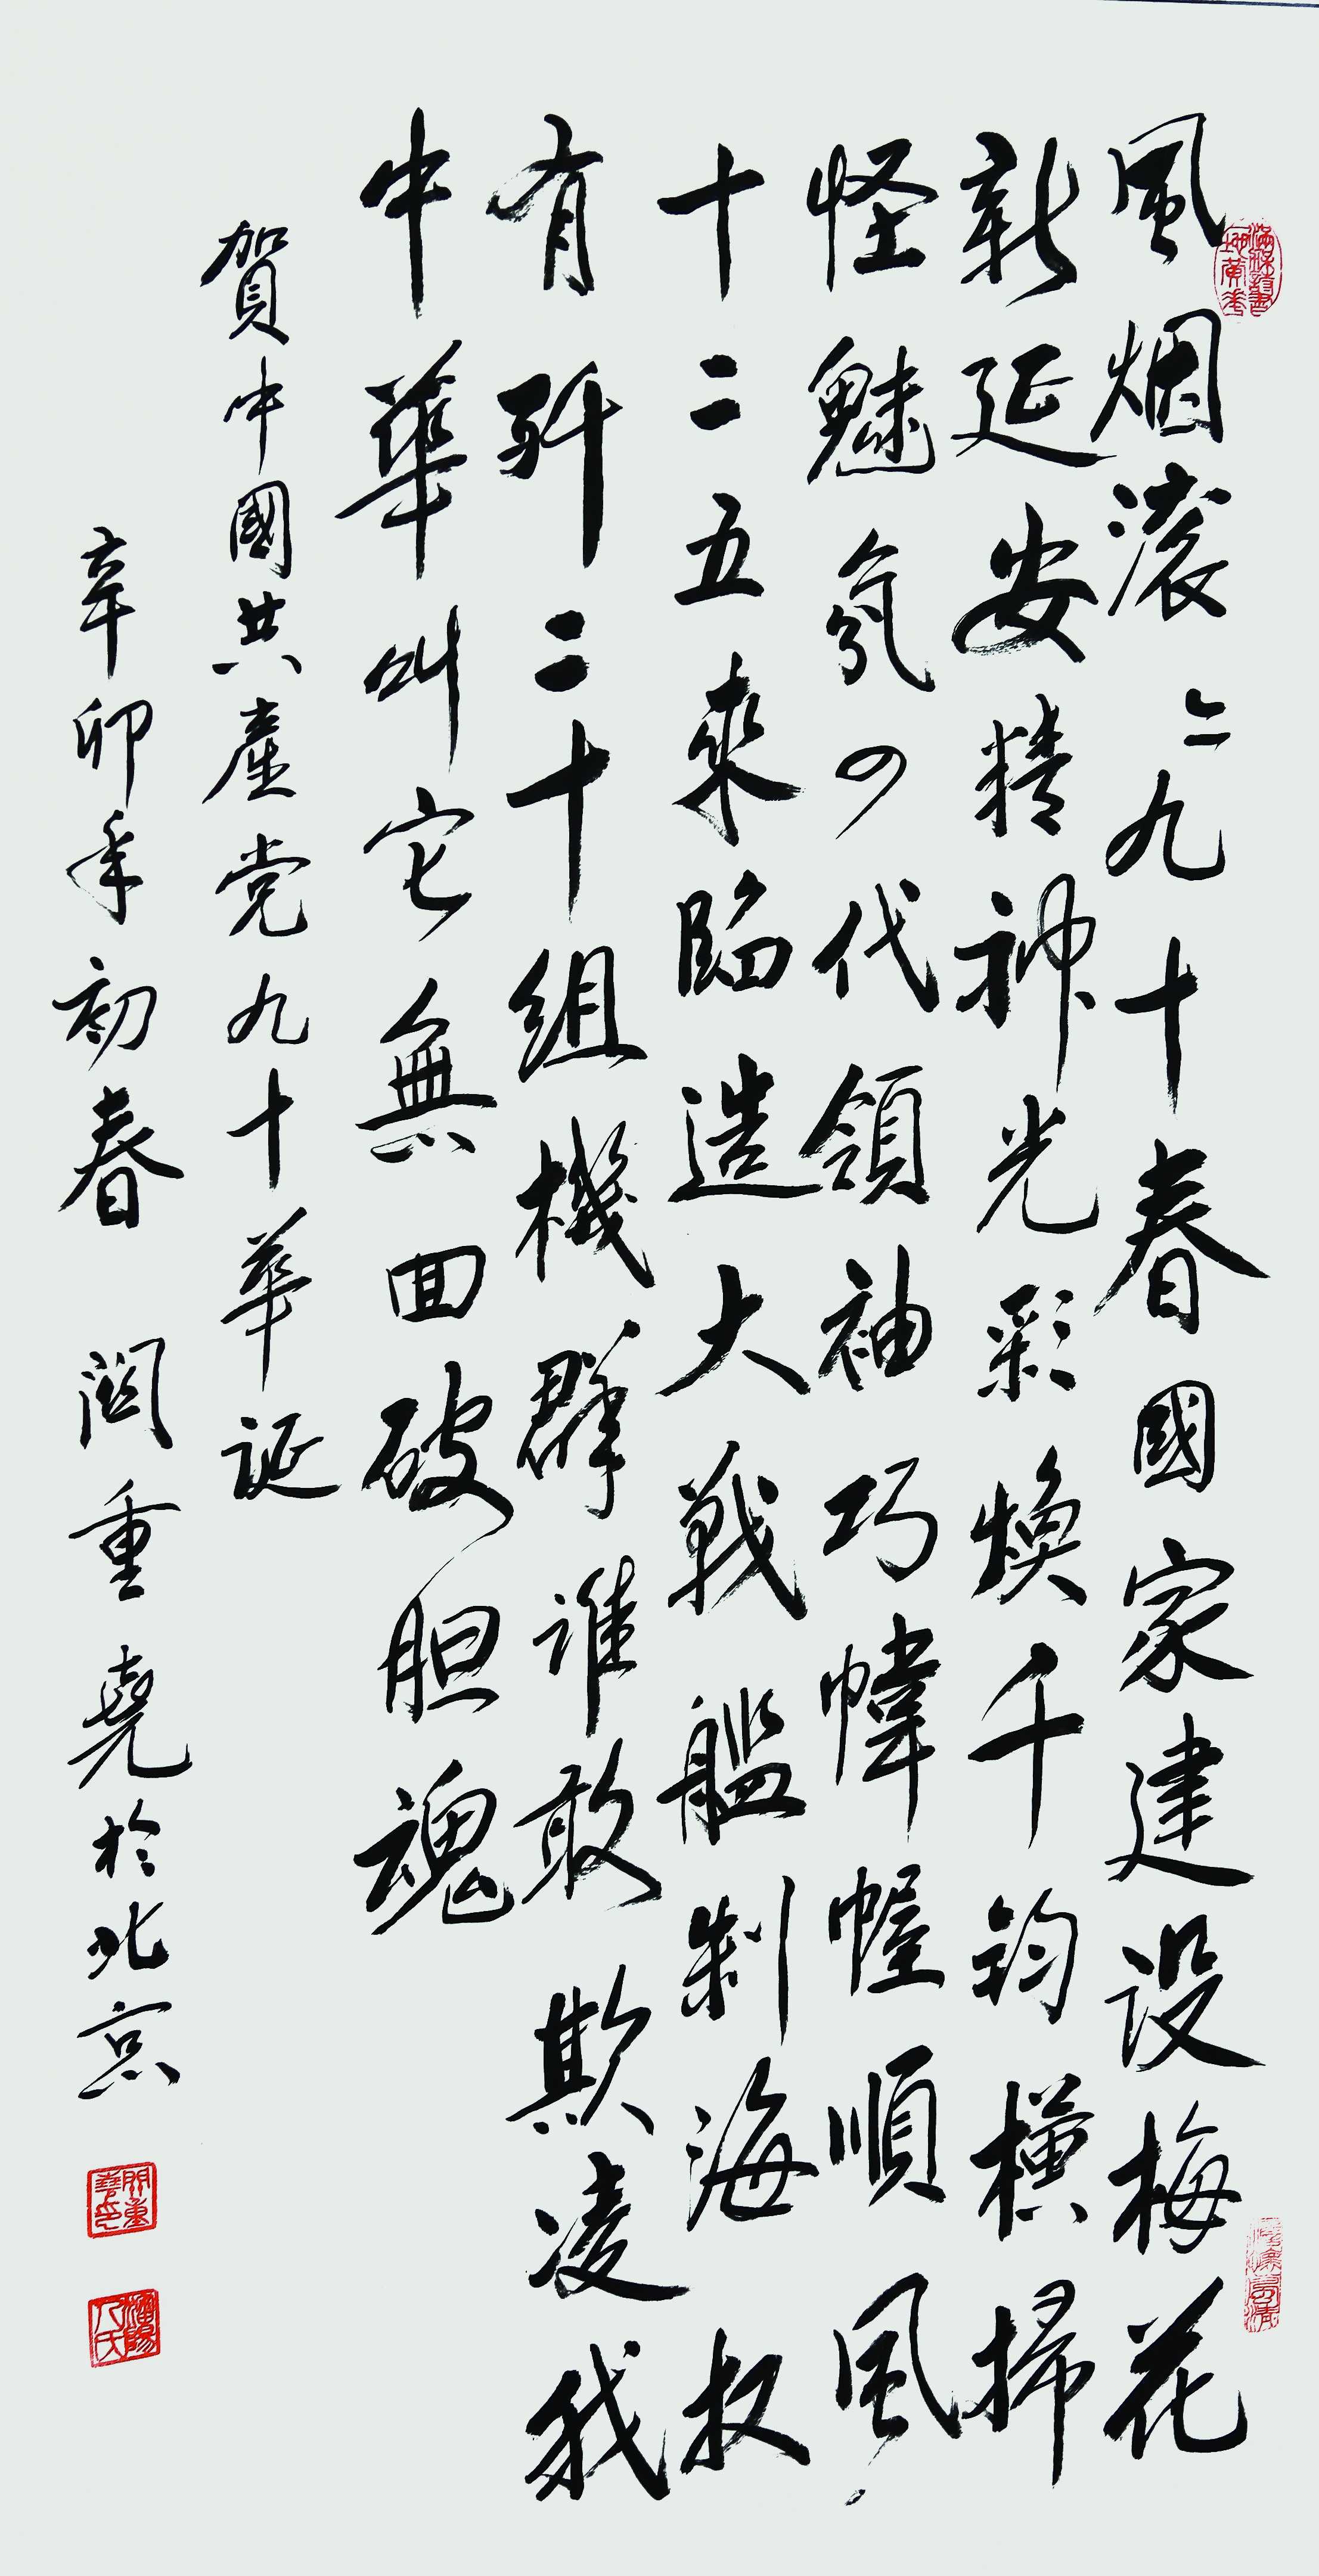 風烟滚々九十春國家建设梅花
新延安精神光彩焕千钧横掃
怪魅氛四代領袖巧幃幄順風
十二五來臨造大戰艦制海权
有歼二十组機群谁敢欺凌我
中華叫它無回破胆魂
賀中國共產党九十華誕
辛卯年初春 関重堯於北京